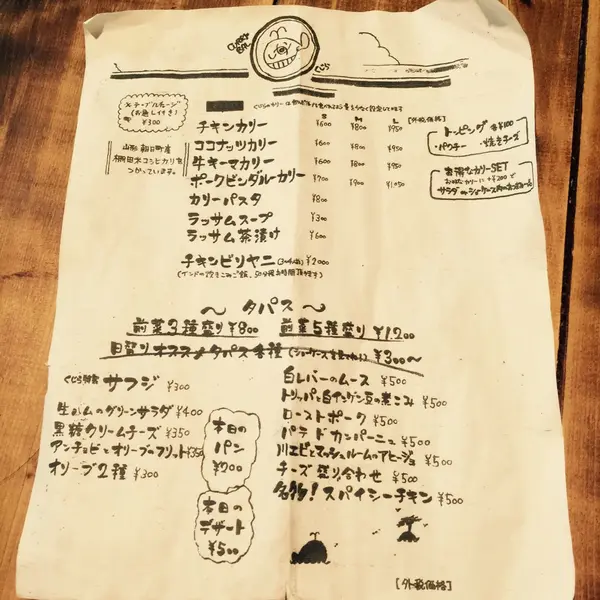 CURRY
BAR
くじら
※テーブルチャージ
(お通し付き)
¥300
[外税価格]
S M L
チキンカリー ¥600 ¥800 ¥950
ココナッツカリー ¥600 ¥800 ¥950
牛キーマカリー ¥600 ¥800 ¥950
ポークビンダルーカリー ¥700 ¥900 ¥1,050
カリーパスタ ¥800
ラッサムスープ ¥300
ラッサム茶漬け ¥600
チキンビリヤニ (3〜4人前) ¥2000
山形 朝日町産
棚田米コシヒカリを
つかっています。
トッピング 各¥100
・パクチー ・焼きチーズ
お得なカリーSET
お好きなカリーに+¥200で
〜 タパス 〜
前菜3種盛り¥800 前菜5種盛り ¥1,200
日替りオススメタパス各種 ¥300〜
くじら特製 サフジ ¥300
生ハムのグリーンサラダ ¥400
黒糖クリームチーズ ¥350
アンチョビとオリーブのフリット¥350
オリーブ2種 ¥300
本日の
パン
¥200
本日の
デザート
¥500
白レバーのムース ¥500
トリッパと白インゲン豆の煮こみ ¥500
ローストポーク ¥500
パテ ド カンパーニュ ¥500
川エビとマッシュルームのアヒージョ ¥500
チーズ盛り合わせ ¥500
名物! スパイシーチキン ¥500
[外税価格]